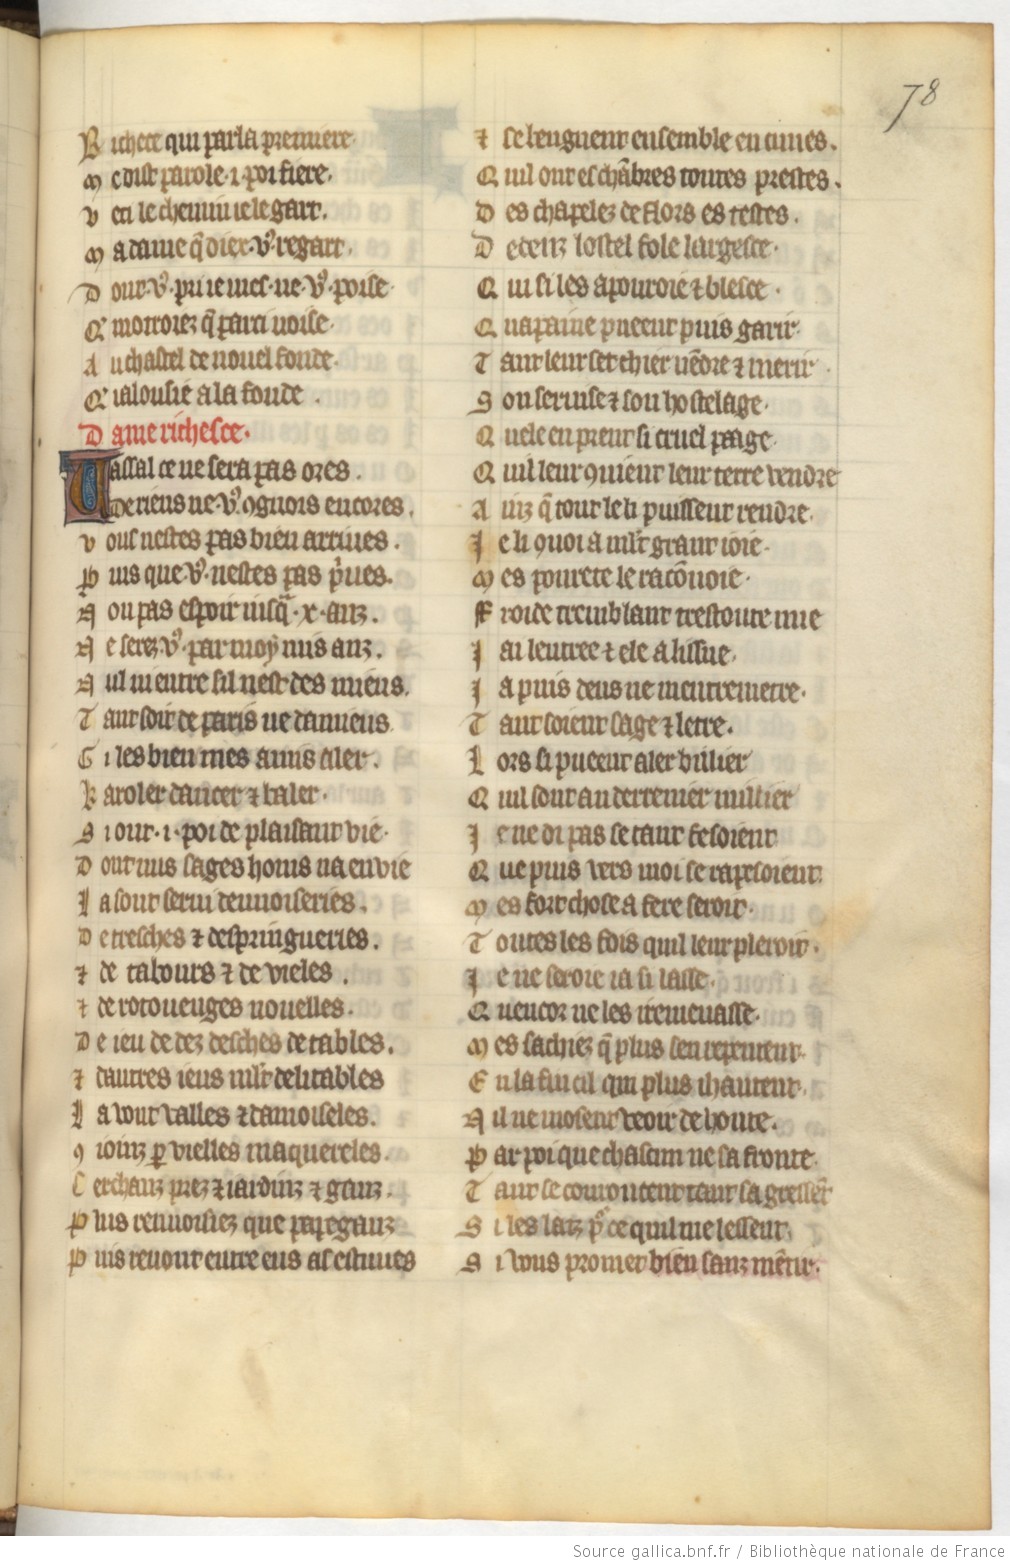 78
Richece qui parla premiere
me dist parole .i. poi fiere.
ven le chemin ie le gart.
ma dame q̄ diex vꝰ regart.
Dont vꝰ pri ie mes ne vꝰ poise
Q motroiez q̄ par ci voise
Au chastel de nouel fonde.
Q ialousie a la fonde.
Dame richesce.
Vassal ce ne sera pas ores.
De riens ne vꝰ ꝯgnois encores.
vous nestes pas bien arriues.
Puis que vꝰ nestes pas p̄ues.
Nou pas espoir iusq̄ .x. anz.
Ne serez vꝰ par moy mis anz.
Nul ni entre sil nest des miens.
Tant soit de paris ne damiens
Gi les bien mes amis aler.
karoler dancer ⁊ baler.
Si ont .i. poi de plaisant vie.
Dont nus sages homs na envie
La sont serui denuoiseries.
De tresches ⁊ despringueries.
⁊ de tabours ⁊ de vieles.
⁊ de rotouenges nouelles.
De ieu de dez desches de tables.
⁊ dautres ieus mlt delitables
La vont valles ⁊ damoiseles.
ꝯ ioinz ꝑ vielles maquereles.
Cerchanz prez ⁊ iardinz ⁊ ganz.
Plus renuoisiez que papeganz
Puis reuont entre eus as estuues
⁊ se bengnent ensemble en cuues.
Quil ont es chābres toutes prestes.
Des chapelez de flors es testes.
Dedenz lostel fole largesce.
Qui si les apouroie ⁊ blesce.
Qua paine pueent puis garir
Tant leur set chier vēdre ⁊ merir
Son seruise ⁊ son hostelage.
Quele en prent si cruel paage
Quil leur ꝯuient leur terre vendre
Ainz q̄ tout le li puissent rendre.
Je li ꝯuoi a mlt grant ioie.
Mes pourete le racōnoie.
Froide tremblant trestoute nue
Jai lentree ⁊ ele a lissue.
Ja puis deus ne mentremetre.
Tant soient sage ⁊ letre.
Lors si pueent aler billier
Quil sont au derrenier millier
Je ne di pas se tant fesoient
Que puis vers moi se rapesoient.
Mes fort chose a fere seroit.
Toutes les fois quil leur pleroit.
Je ne seroie ia si lasse.
Quencor ne les iremenasse.
Mes sachiez q̄ plus sen repentent
En la fin cil qui plus i hantent.
Nil ne mosent veoir de honte.
Par poi que chascun ne safronte.
Tant se courroucent tant sa gressēt
Si les laiz pꝰ ce quil me lessent.
Si vous promet bien sanz mētir.
Source gallica.bnf.fr / Bibliothèque nationale de France